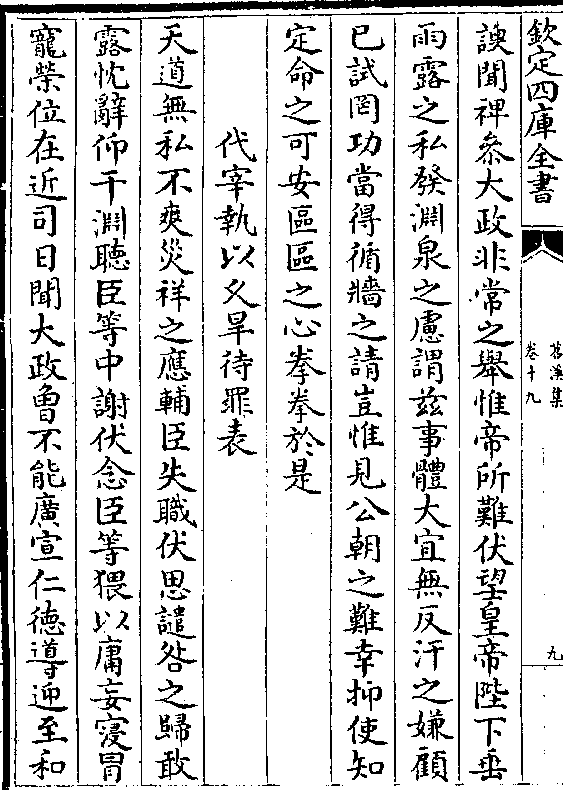 欽定四庫全書
苕溪集
卷十九
九
諛聞禆叅大政非常之舉惟帝所難伏望皇帝陛下垂
雨露之私發淵泉之慮謂兹事體大宜無反汗之嫌顧
已試罔功當得循牆之請豈惟見公朝之難幸抑使知
定命之可安區區之心拳拳於是
代宰執以久旱待罪表
天道無私不爽災祥之應輔臣失職伏思譴咎之歸敢
露忱辭仰干淵聽臣等中謝伏念臣等猥以庸妄寖冒
寵榮位在近司日聞大政曾不能廣宣仁德導迎至和